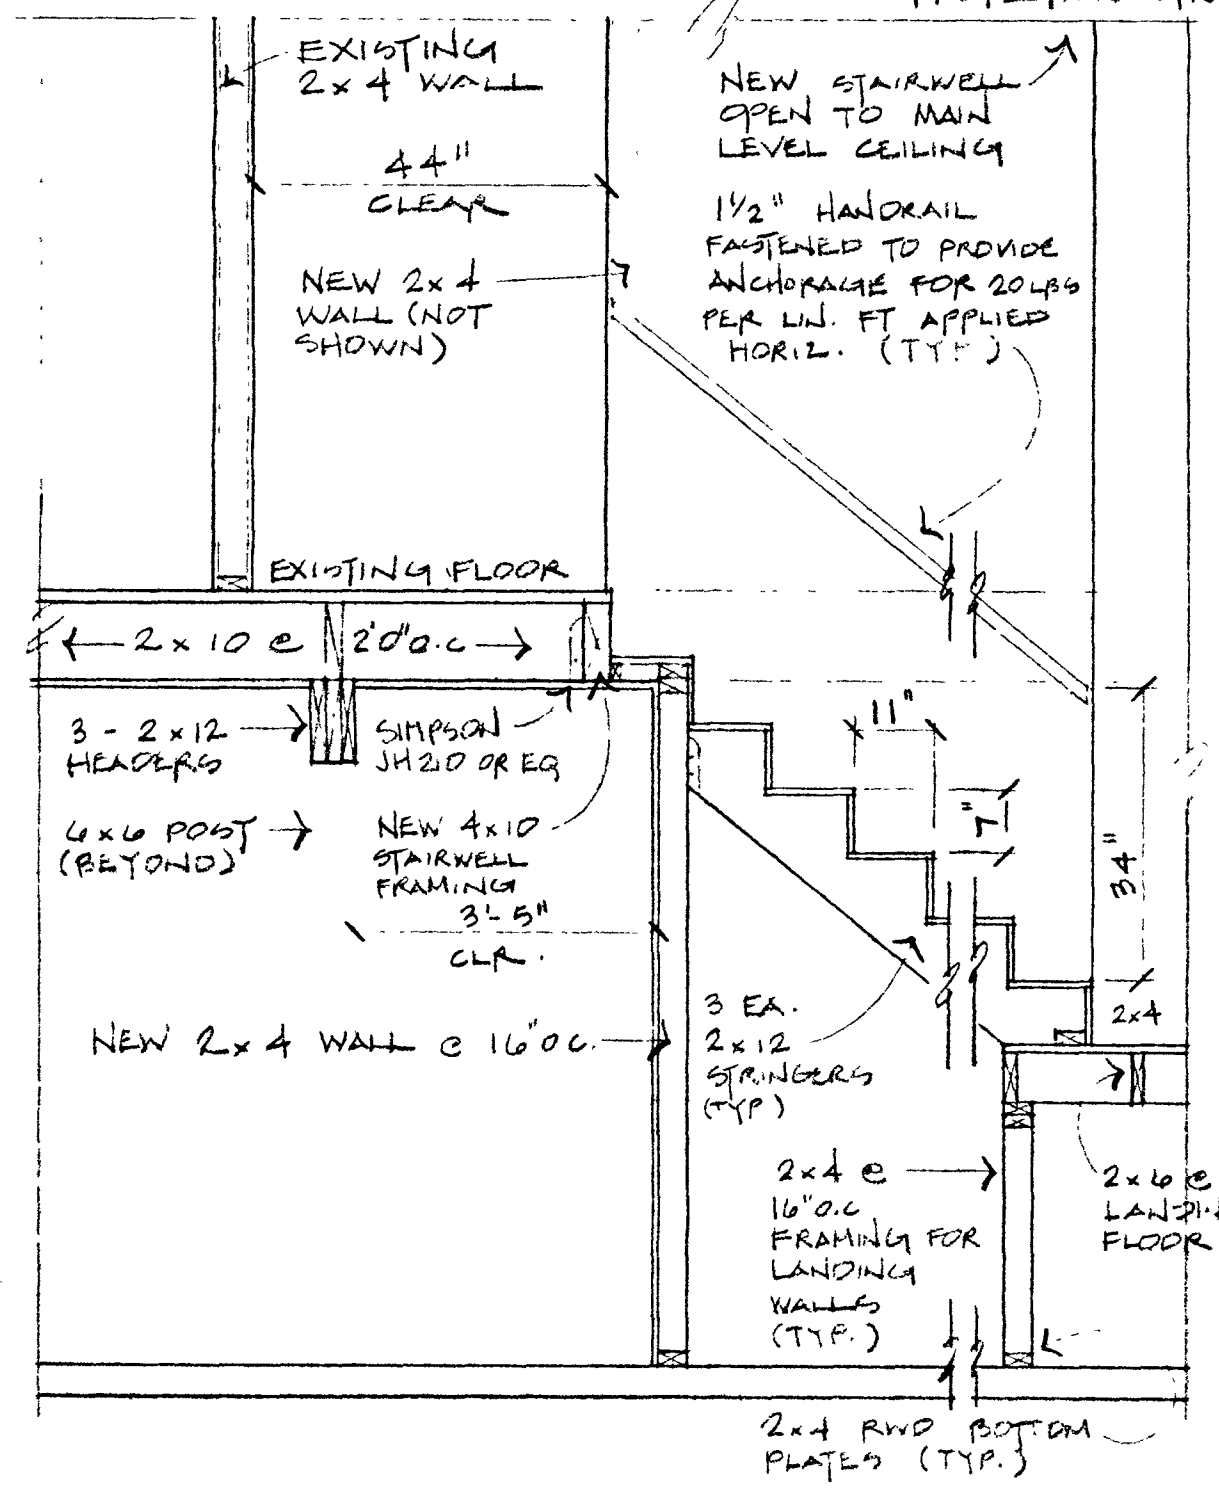 EXISTING
2x4 WALL
44"
CLEAR
NEW 2x4
WALL (NOT
SHOWN)
NEW STAIRWELL
OPEN TO MAIN
LEVEL CEILING
1½" HANDRAIL
FASTENED TO PROVIDE
ANCHORAGE FOR 20 LBS
PER LIN. FT APPLIED
HORIZ. (TYP)
EXISTING FLOOR
2x10 @ 2'0" O.C
3 - 2x12
HEADERS
SIMPSON
JH210 OR EQ
6x6 POST
(BEYOND)
NEW 4x10
STAIRWELL
FRAMING
3'-5"
CLR.
11"
7"
34"
NEW 2x4 WALL @ 16" OC.
3 EA.
2x12
STRINGERS
(TYP)
2x4
2x4 @
16" O.C
FRAMING FOR
LANDING
WALLS
(TYP.)
2x6 @
FLOOR
2x4 RWD BOTTOM
PLATES (TYP.)